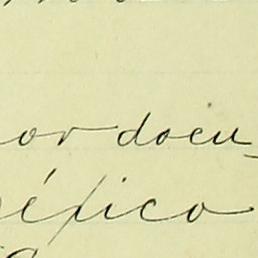 or docu-
éxico